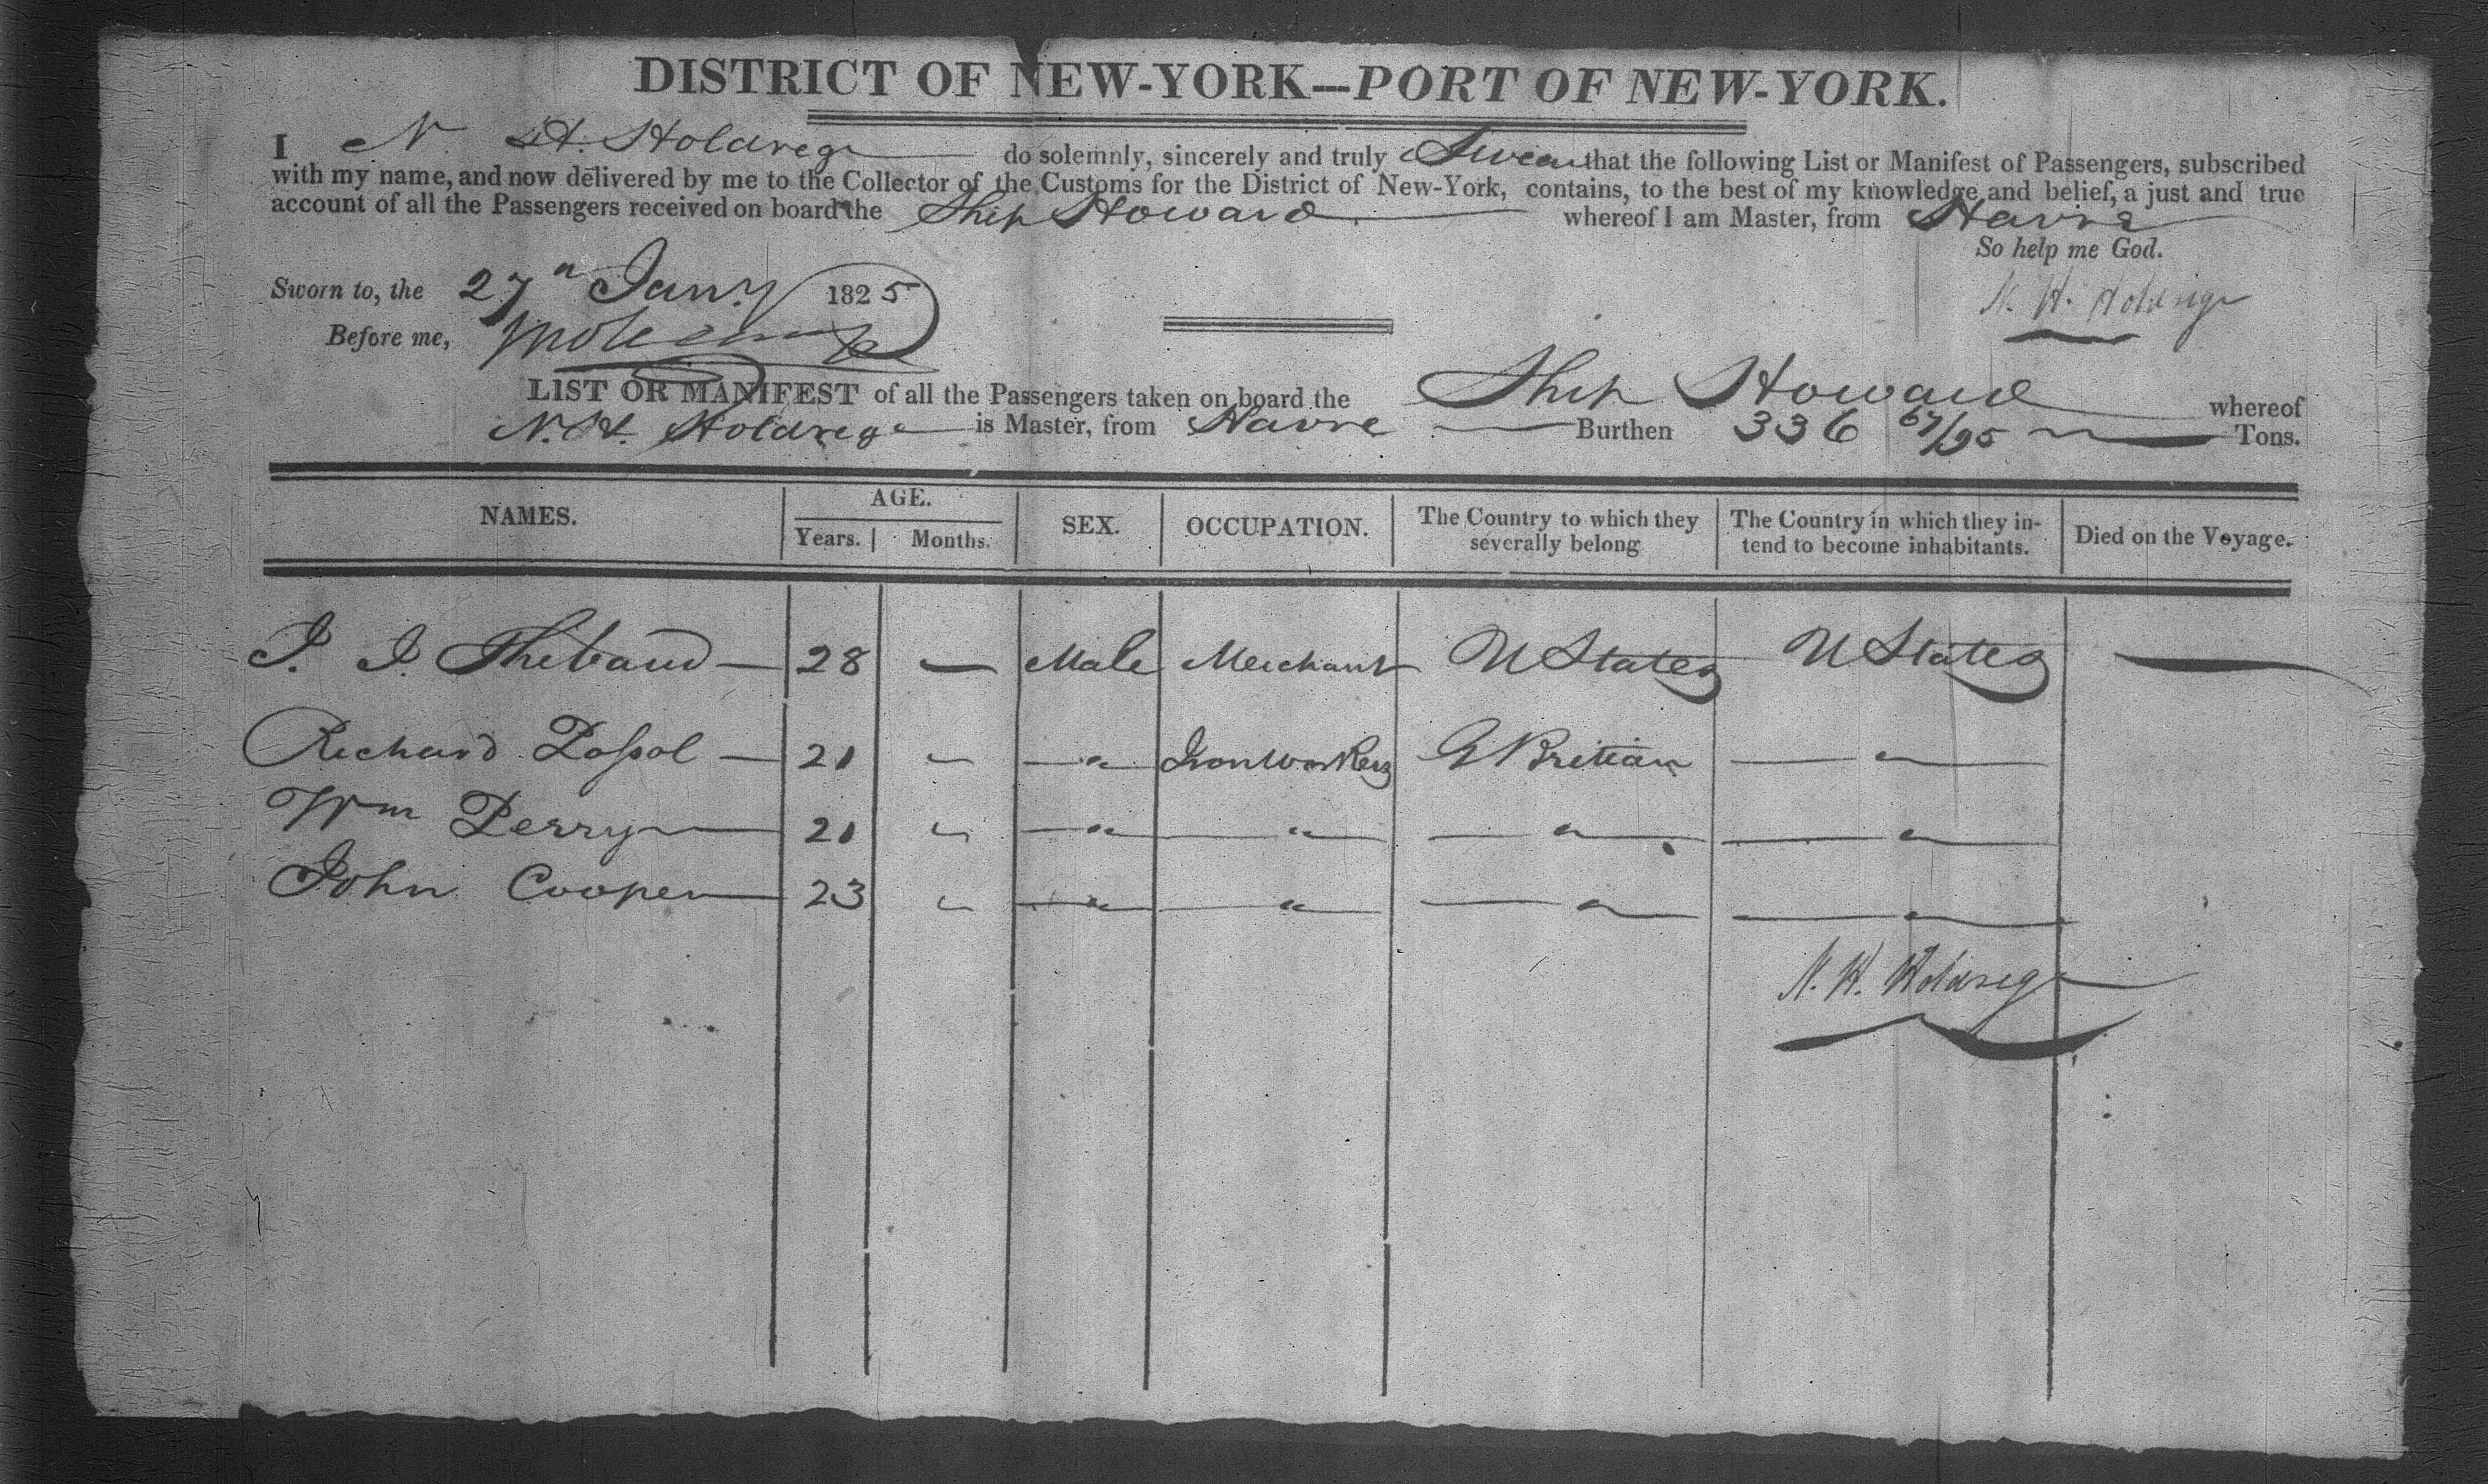 DISTRICT OF NEW-YORK—PORT OF NEW-YORK.
I N. H. Holdrege do solemnly, sincerely and truly Swear that the following List or Manifest of Passengers, subscribed
with my name, and now delivered by me to the Collector of the Customs for the District of New-York, contains, to the best of my knowledge and belief, a just and true
account of all the Passengers received on board the Ship Howard whereof I am Master, from Havre
So help me God.
Sworn to, the 27th Jany 1825
N. H. Holdrege
Before me,
LIST OR MANIFEST of all the Passengers taken on board the Ship Howard whereof
N. H. Holdrege is Master, from Havre Burthen 336 67/95 Tons.
NAMES. AGE. Years. Months. SEX. OCCUPATION. The Country to which they severally belong The Country in which they intend to become inhabitants. Died on the Voyage.
J. J. Thebaud — 28 — Male Merchant U States U States —
Richard Poſsol — 21 " " Iron Workers G Britian "
Wm Perry — 21 " " " " "
John Cooper — 23 " " " " "
N. H. Holdrege